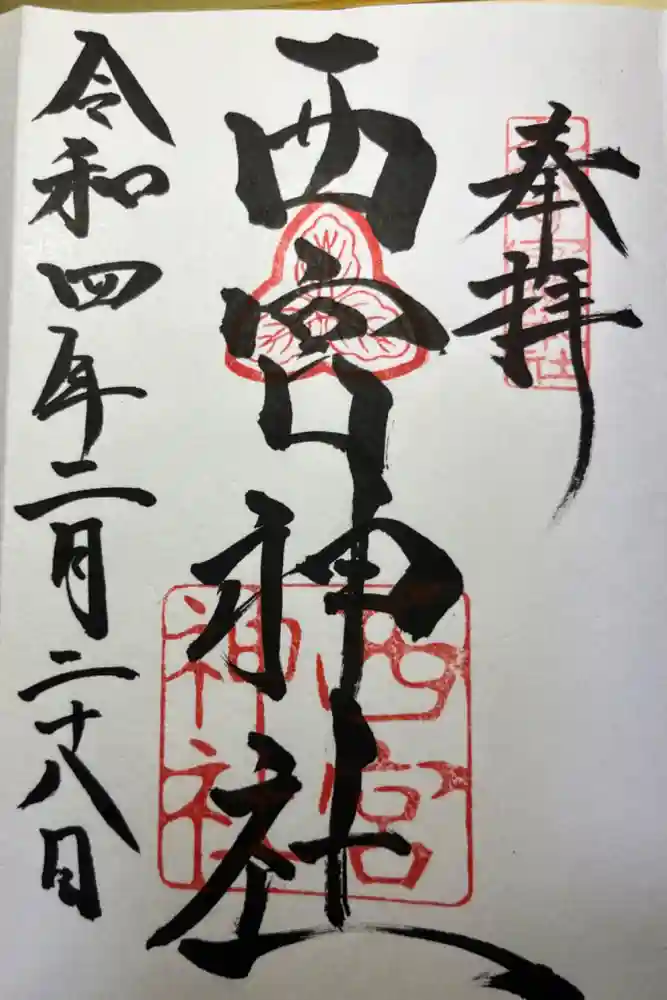 奉拝
西宮神社
西宮
神社
令和四年二月二十八日